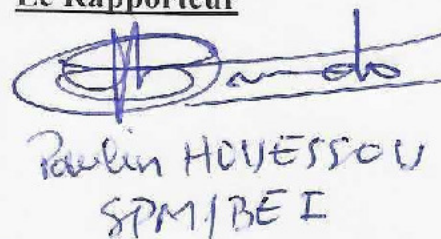 Le Rapporteur
Paulin HOUESSOU
SPM/BEI